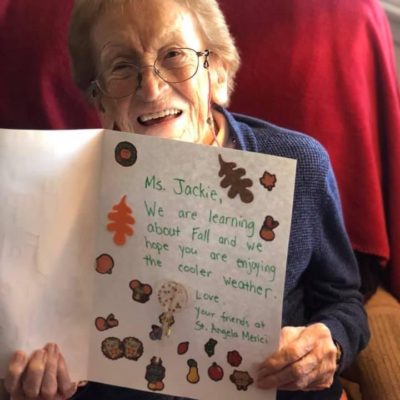 Ms. Jackie,
We are learning
about Fall and we
hope you are enjoying
the cooler weather.
Love,
your friends at
St. Angela Merici